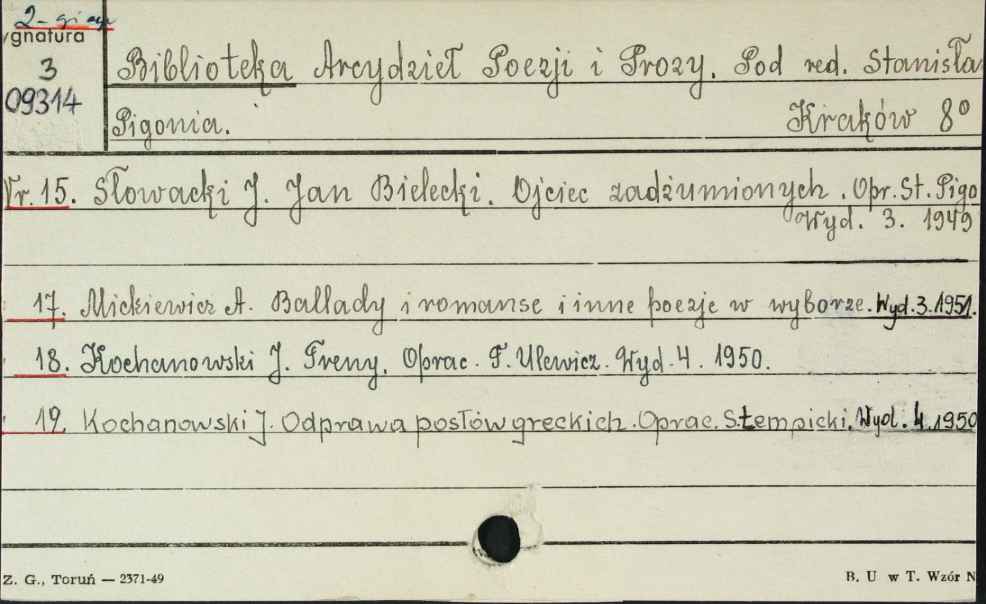 2-gi egz
ygnatura
3
09314
Biblioteka Arcydzieł Poezji i Prozy. Pod red. Stanisła
Pigonia. Kraków 8°
Nr. 15. Słowacki J. Jan Bielecki. Ojciec zadżumionych. Opr. St. Pigo
Wyd. 3. 1949
17. Mickiewicz A. Ballady i romanse i inne poezje w wyborze. Wyd. 3. 1951.
18. Kochanowski J. Treny. Oprac. T. Ulewicz. Wyd. 4. 1950.
19. Kochanowski J. Odprawa posłów greckich. Oprac. S. Łempicki. Wyd. 4. 1950
Z. G., Toruń — 2371-49
B. U w T. Wzór N